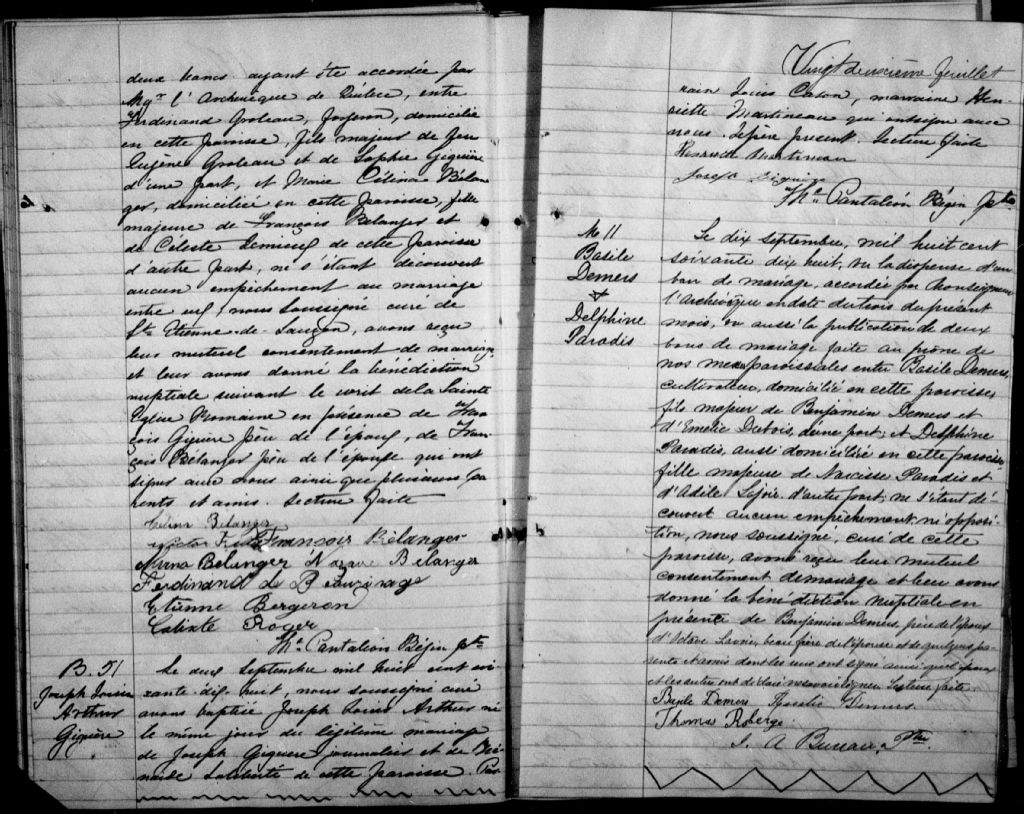 deux bancs ayant été accordée par
Mgr l'Archevêque de Québec, entre
Ferdinand Groleau, forgeron, domicilié
en cette paroisse, fils majeur de feu
Eugène Groleau et de Sophie Giguère
d'une part, et Marie Célina Bélan
ger, domiciliée en cette paroisse, fille
majeure de François Bélanger et
de Céleste Lemieux de cette paroisse
d'autre part, ne s'étant découvert
aucun empichement au marriage
entre eux, nous soussigné curé de
St Etienne de Lauzon, avons reçu
leur mutuel consentement de marriage
et leur avons donné la bénédiction
nuptiale suivant le de la Sainte
Eglise Romaine en présence de Fran
çois Giguère de l'époux, de Fran
çois Bélanger père de l'épouse qui ont
signé avec nous ainsi que plusieurs pa
rents et amis. Lecture faite
Célina Bélanger
François Bélanger
Bélanger Bélanger
Ferdinand de
Etienne Bergeron
Calixte Roger
Ths Pantaléon Bégin Ptre
B. 51
Joseph Louis
Arthur
Giguère
Le deux Septembre mil huit cent soi
xante dix huit, nous soussigné curé
avons baptisé Joseph Louis Arthur né
le même jour du légitime mariage
de Joseph Giguère journalier et de
de cette paroisse. Par
Vingt deuxième feuillet
rain Louis Caron, marraine Hen
riette Martineau qui ont signé avec
nous. Le père présent. Lecture faite
Henriette Martineau
Joseph Giguère
Ths Pantaléon Bégin Ptre
M 11
Basile
Demers
&
Delphine
Paradis
Le dix septembre, mil huit cent
soixante dix huit, vu la dispense d'un
ban de mariage, accordée par Monseigneur
l'Archevêque en date du trois du présent
mois, vu aussi la publication de deux
bans de mariage faite au prône de
nos messes paroissiales entre Basile Demers,
cultivateur, domicilié en cette paroisse,
fils majeur de Benjamin Demers et
d'Emélie Dubois, d'une part; et Delphine
Paradis, aussi domiciliée en cette paroisse
fille majeure de Narcisse Paradis et
d'Adèle Lajoie d'autre part; ne s'étant dé
couvert aucun empêchement, ni opposi
tion, nous soussigné, curé de cette
paroisse, avons reçu leur mutuel
consentement de mariage et leur avons
donné la bénédiction nuptiale en
présence de Benjamin Demers, père de l'époux
d'Octave beau frère de l'épouse et de quelques pa
rents et amis dont les uns ont signé ainsi que l'époux
et les autres ont déclaré ne savoir signer. Lecture faite.
Basile Demers Rosalie Demers
Thomas Roberge
J. A. Bureau, Ptre.